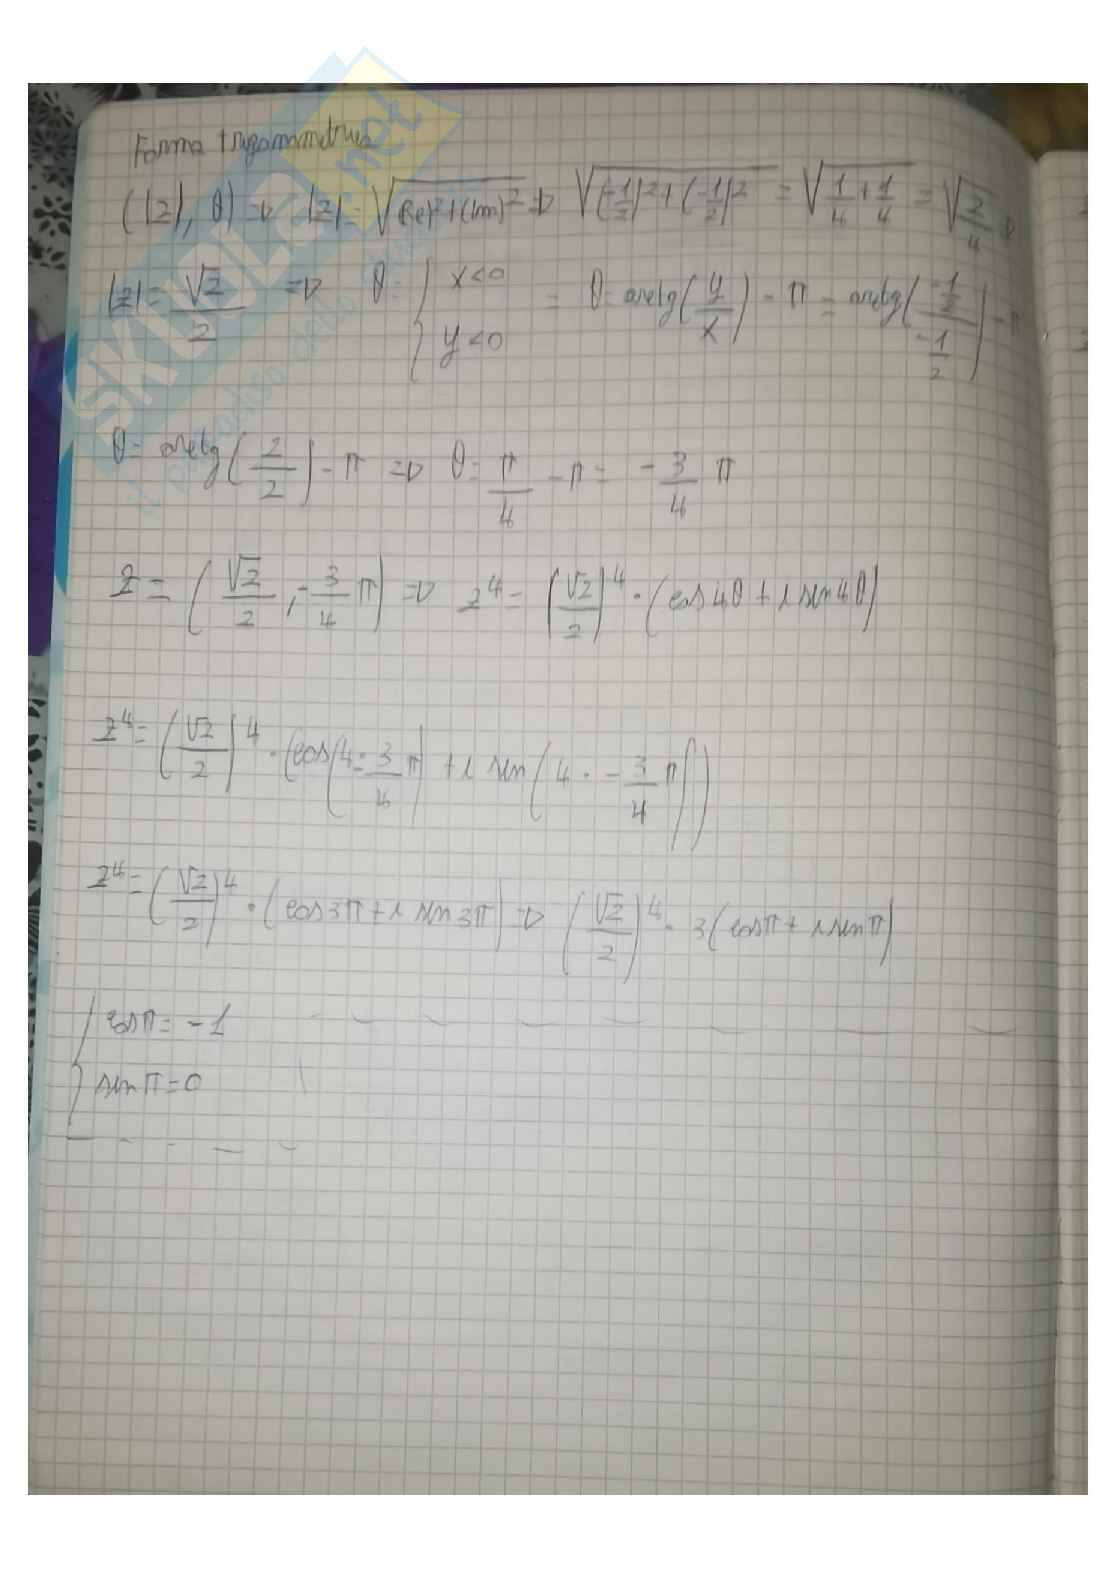 Forma trigonometrica
(|z|, θ) => |z| = √(Re)²+(Im)² => √(-1/2)²+(-1/2)² = √1/4+1/4 = √2/4 =>
|z| = √2/2 => θ= { x<0 y<0 = θ= arctg(y/x) - π = arctg(-1/2/-1/2) - π
θ= arctg(2/2) - π => θ= π/4 - π = -3/4 π
z = (√2/2, -3/4 π) => z⁴ = (√2/2)⁴ · (cos4θ + i sen4θ)
z⁴ = (√2/2)⁴ · (cos(4·-3/4 π) + i sen(4 · -3/4 π))
z⁴ = (√2/2)⁴ · (cos3π + i sen3π) => (√2/2)⁴ · 3(cosπ + i senπ)
{ cosπ = -1
senπ = 0
SKUOLA.net